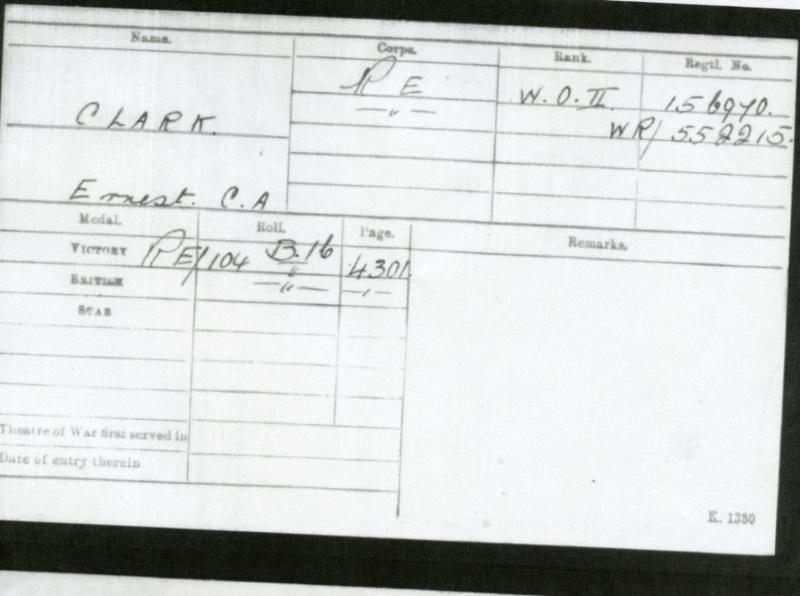 Name. Corps. Rank. Regtl. No.
R E W.O.II. 156970.
CLARK. —"— WR/552215.
Ernest. C.A
Medal. Roll. Page. Remarks.
VICTORY RE/104 B.16 4301.
BRITISH —"— —"—
STAR
Theatre of War first served in
Date of entry therein
K. 1380